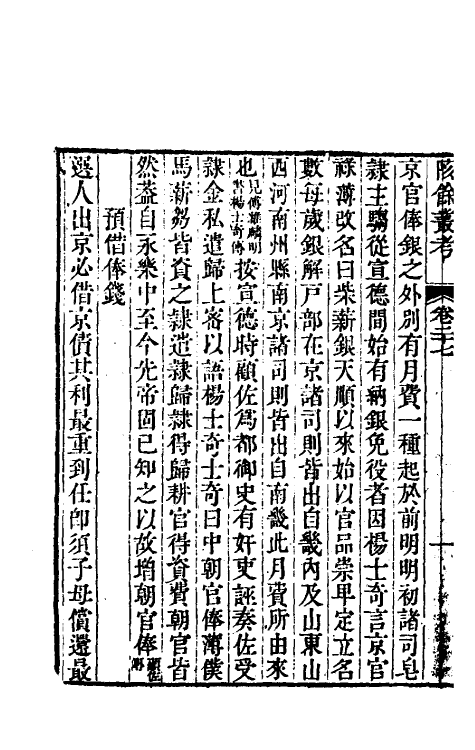 陔餘叢考 卷二十七 一
京官俸銀之外別有月費一種起於前明明初諸司皂
隸主騶從宣德間始有納銀免役者因楊士奇言京官
祿薄改名曰柴薪銀天順以來始以官品崇卑定立名
數每歲銀解戶部在京諸司則皆出自畿內及山東山
西河南州縣南京諸司則皆出自南畿此月費所由來
也見傅維鱗明書楊士奇傳按宣德時顧佐爲都御史有奸吏誣奏佐受
隸金私遣歸上密以語楊士奇士奇曰中朝官俸薄僕
馬薪芻皆資之隸遣隸歸隸得歸耕官得資費朝官皆
然蓋自永樂中至今先帝固已知之以故增朝官俸顧佐傳
預借俸錢
選人出京必借京債其利最重到任卽須子母償還最